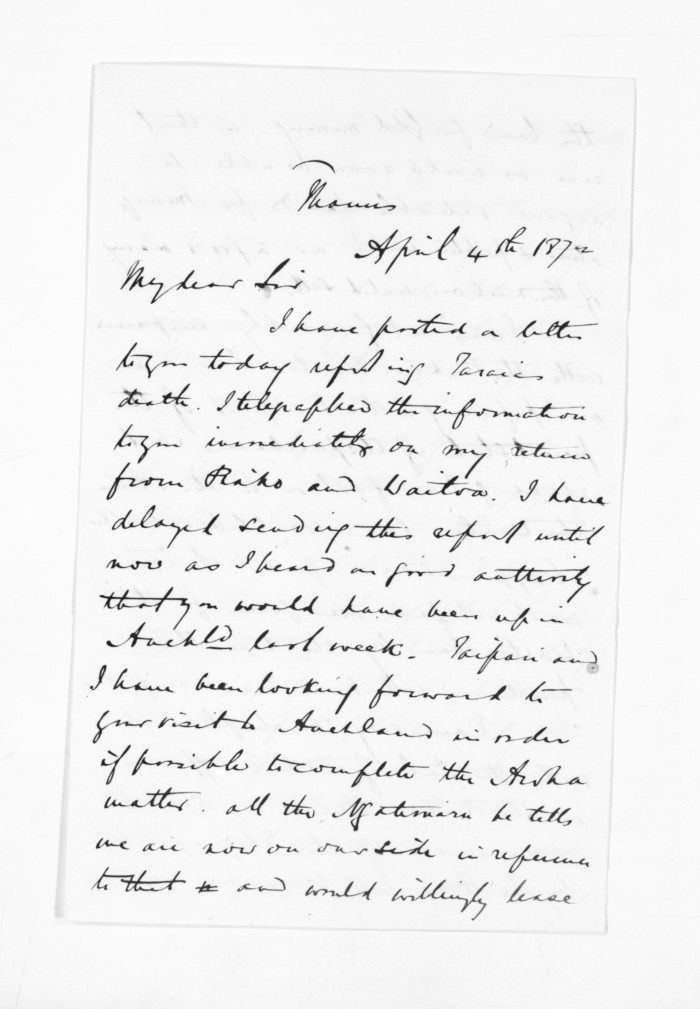 Thames
April 4th 1872
My dear Sir
I have posted a letter
to you today reporting Taraias
death. I telegraphed the information
to you immediately on my return
from Piako and Waitoa. I have
delayed sending this report until
now as I heard on good authority
that you would have been up in
Auckld last week. Taipari and
I have been looking forward to
your visit to Auckland in order
if possible to complete the Aroha
matter. all the Ngatimaru he tells
me are now on our side in reference
to that and would willingly lease